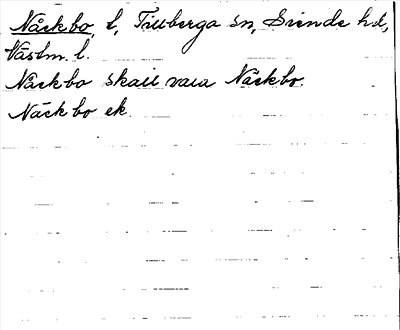 Näckbo, t, Tillberga sn, Siende hd,
Västm. l.
Näckbo skall vara Näckbo.
Näckbo ek.